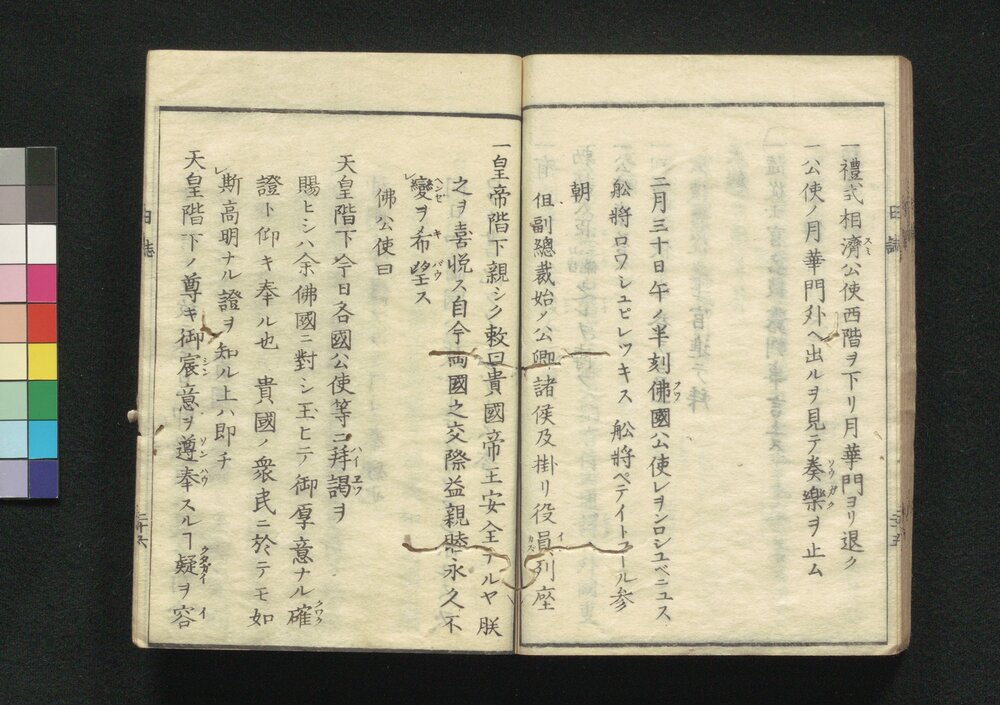 一禮式相濟公使西階ヲ下リ月華門ヨリ退ク
一公使ノ月華門外ヘ出ルヲ見テ奏樂ヲ止ム
二月三十日午ノ半刻佛國公使レヲンロシユベニユス
舩將ロワシユピレツキス 舩將ペテイトユール參
朝
但副總裁始メ公卿諸侯及掛リ役員列座
一皇帝階下親シク敕曰貴國帝王安全ナルヤ朕
之ヲ喜悦ス自今両國之交際益親睦永久不
變ヲ希望ス
佛公使曰
天皇階下今日各國公使等ニ拜謁ヲ
賜ヒシハ余佛國ニ對シ玉ヒテ御厚意ナル確
證ト仰キ奉ル也 貴國ノ衆民ニ於テモ如
斯高明ナル證ヲ知ル上ハ即チ
天皇階下ノ尊キ御宸意ヲ遵奉スルヿ疑ヲ容
日誌
二十六